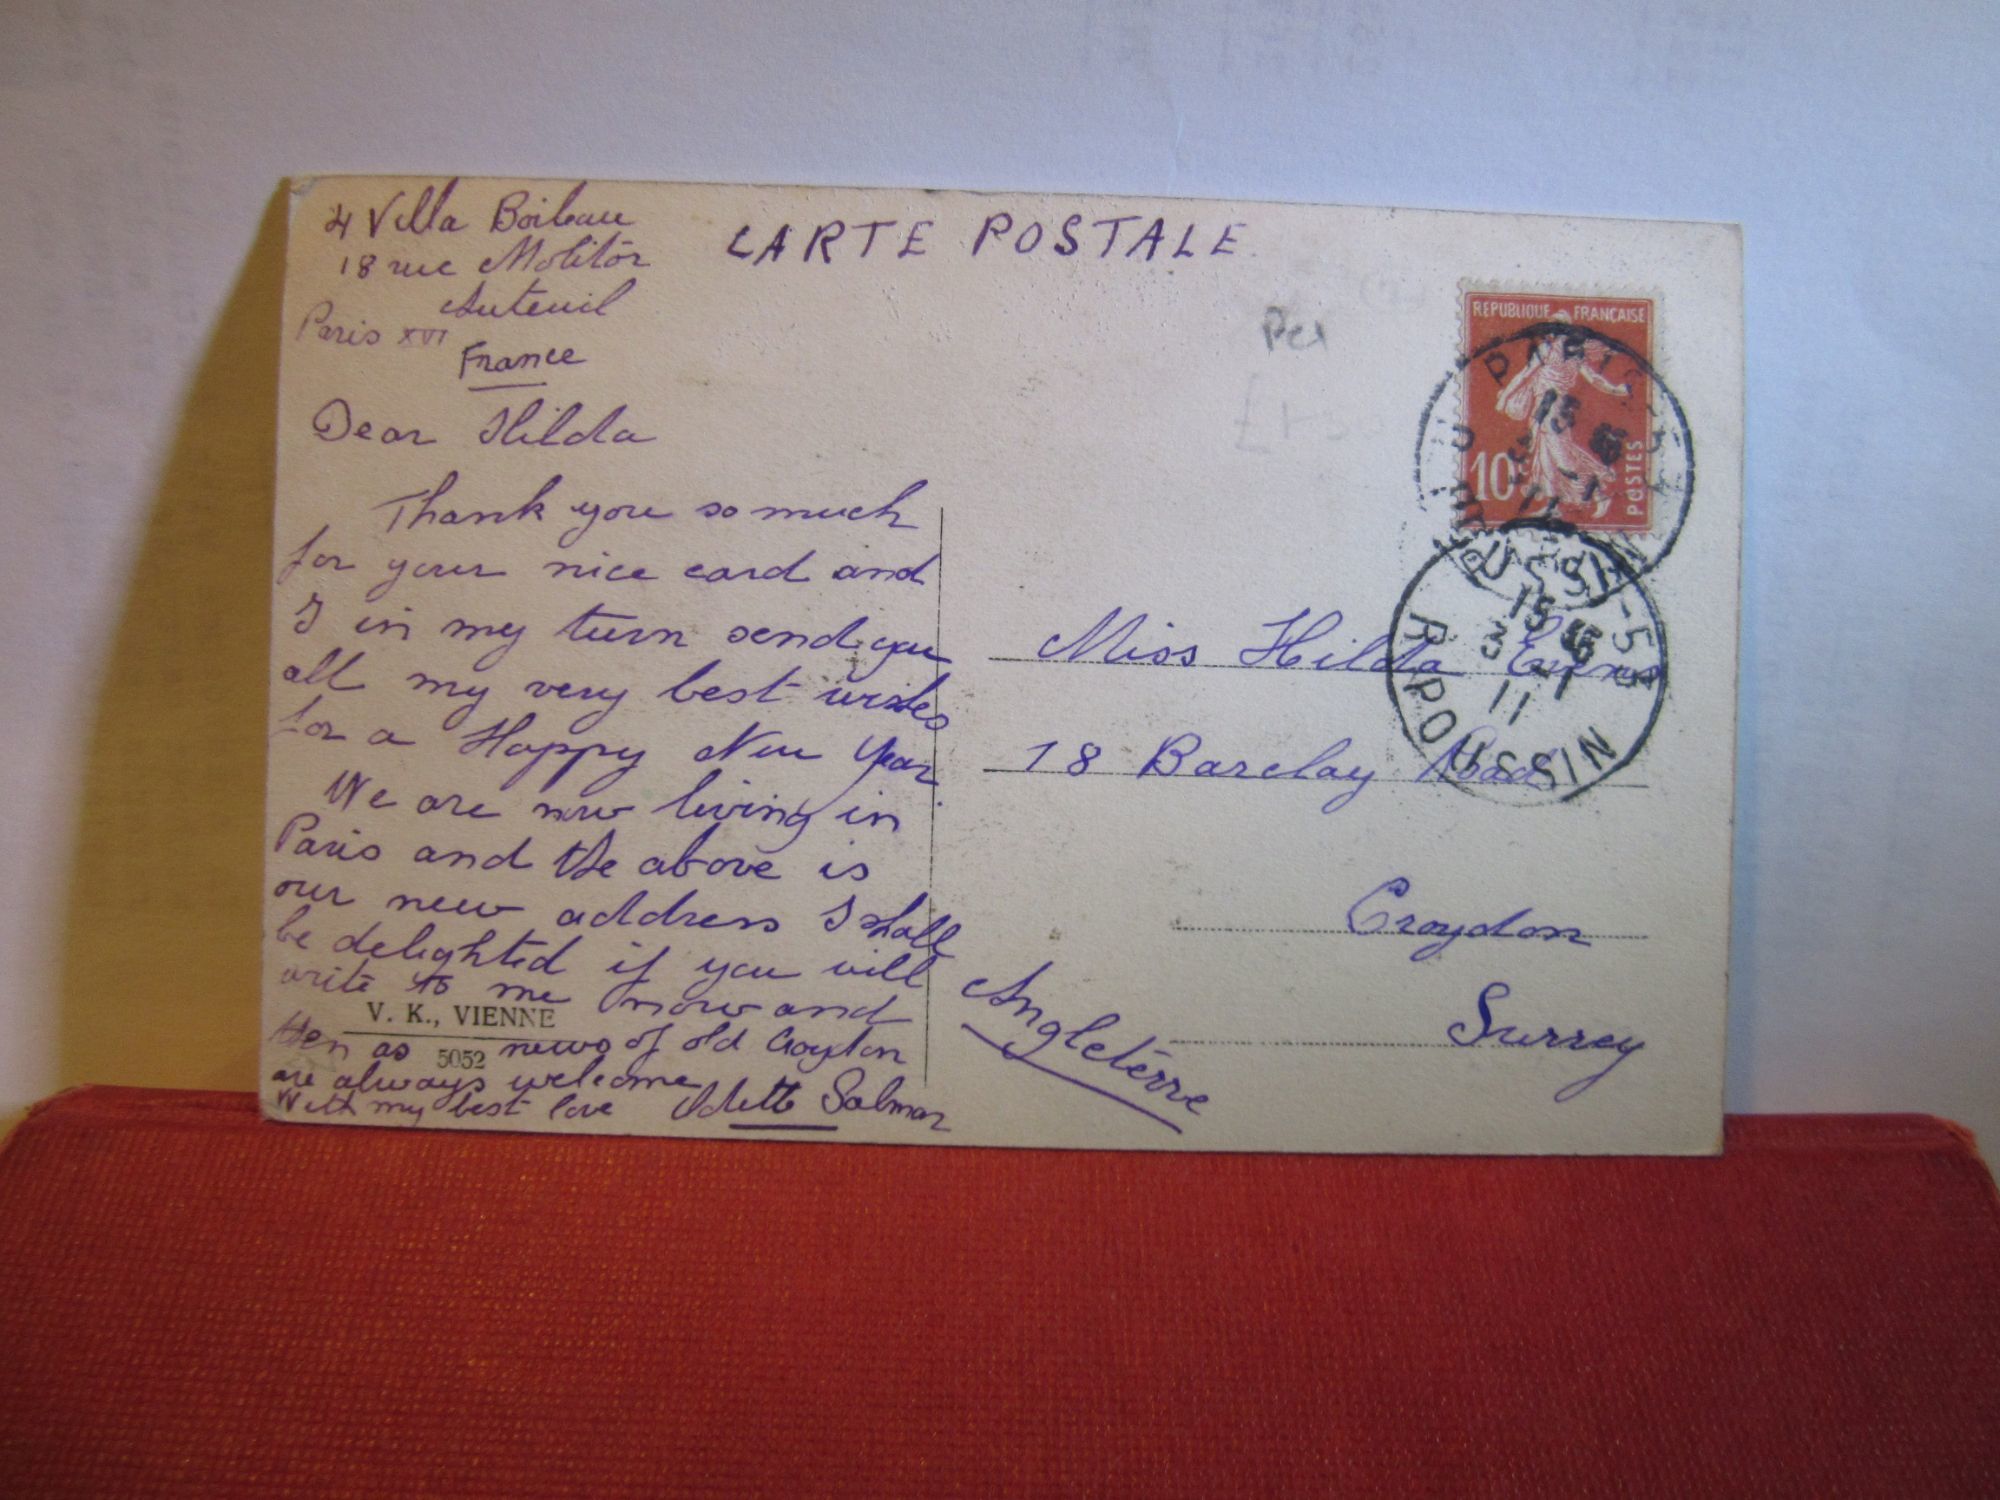 4 Villa Boileau
18 rue Molitor
Auteuil
Paris XVI
France
CARTE POSTALE
Dear Hilda
Thank you so much
for your nice card and
I in my turn send you
all my very best wishes
for a Happy New Year.
We are now living in
Paris and the above is
our new address I shall
be delighted if you will
write to me now and
V. K., VIENNE
then as news of old Croydon
5052
are always welcome
With my best love Odette Salmon
REPUBLIQUE FRANÇAISE
10
POSTES
PARIS
15
11
15
3 - 1
11
Miss Hilda
18 Barclay Road
Croydon
Surrey
Angleterre